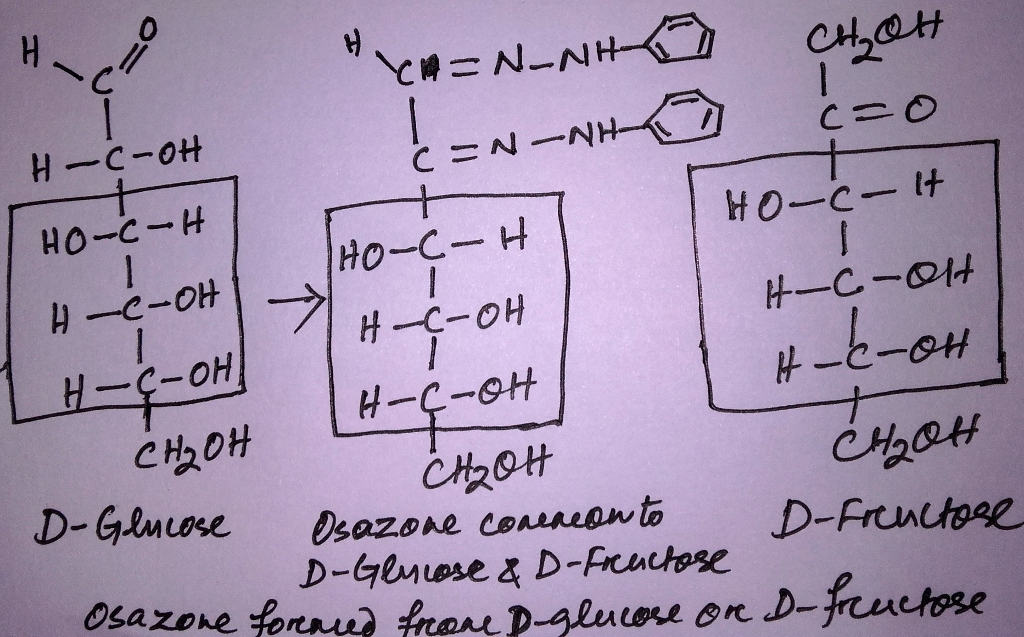 H O CH₂OH
C H C = N – N H –
H – C – OH C = N – NH – C = O
HO – C – H HO – C – H HO – C – H
H – C – OH H – C – OH H – C – OH
H – C – OH H – C – OH H – C – OH
CH₂OH CH₂OH CH₂OH
D-Glucose Osazone common to D-Fructose
D-Glucose & D-Fructose
Osazone formed from D-glucose or D-fructose